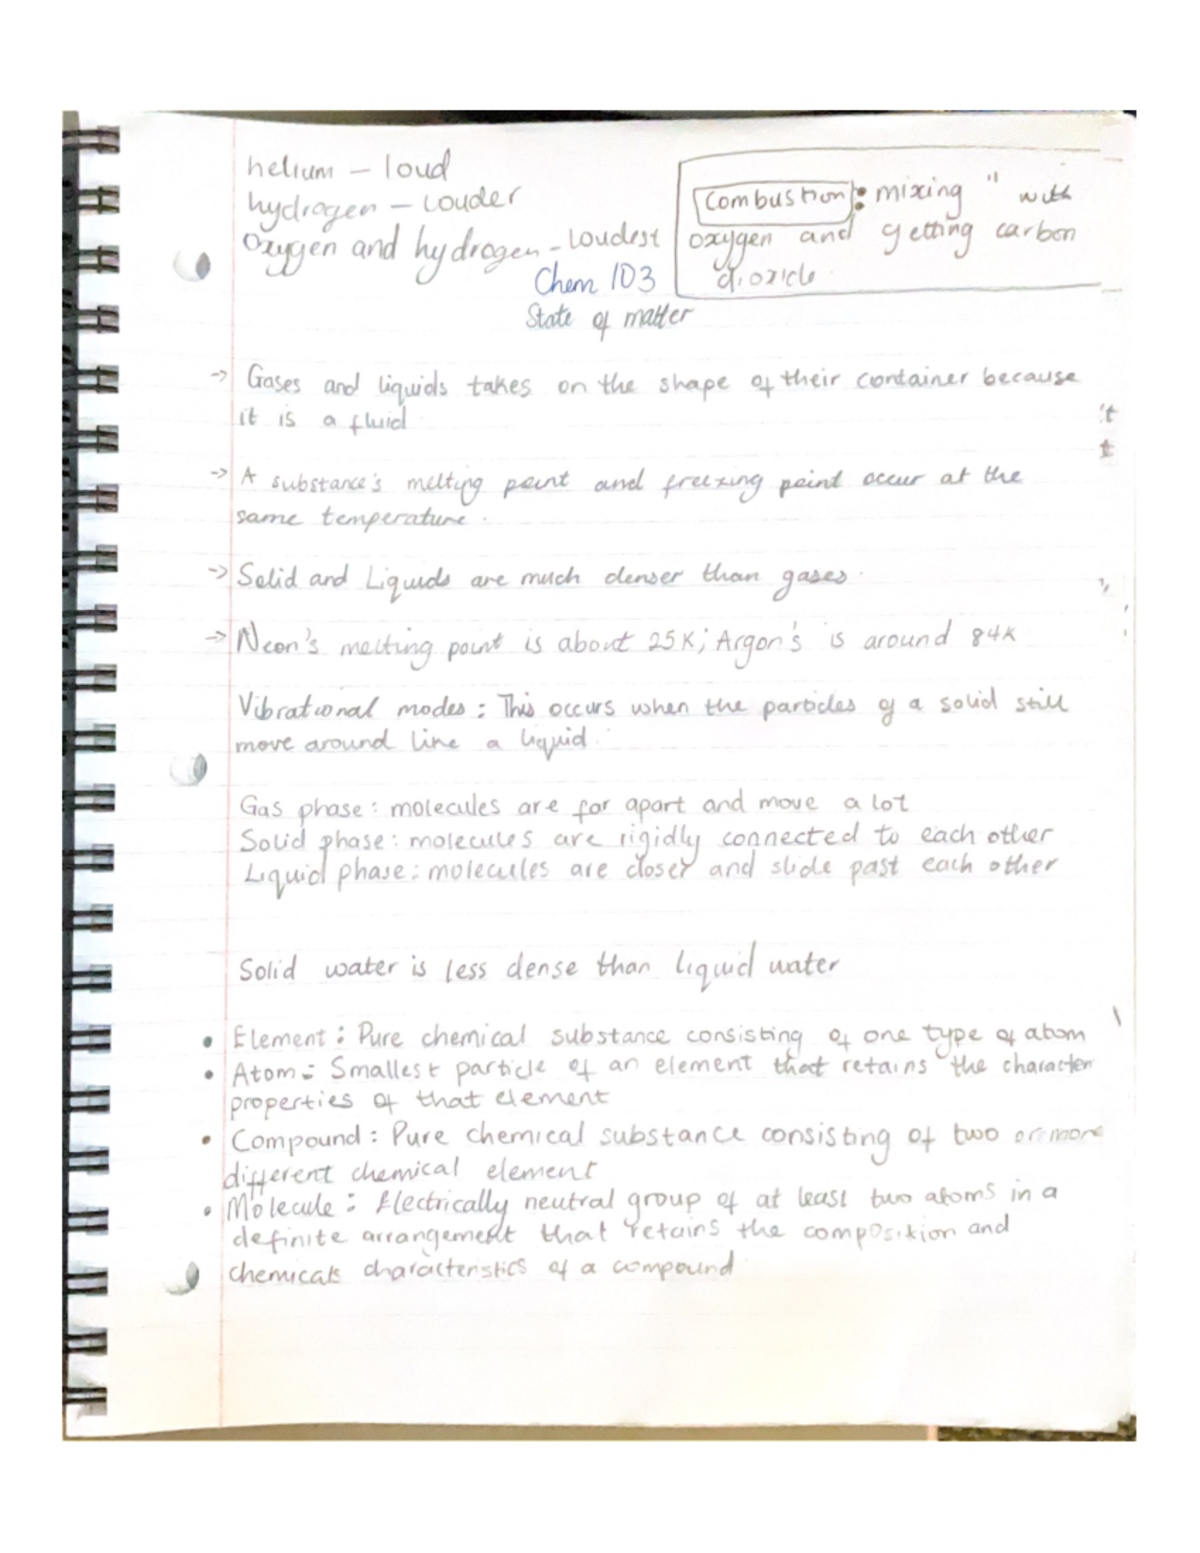 helium – loud
hydrogen – Louder
Oxygen and hydrogen – Loudest
Combustion: mixing " with
oxygen and getting carbon
dioxide.
Chem 103
State of matter
→ Gases and liquids takes on the shape of their container because
it is a fluid.
→ A substance's melting point and freezing point occur at the
same temperature.
→ Solid and Liquids are much denser than gases.
→ Neon's melting point is about 25K; Argon's is around 84K
Vibrational modes: This occurs when the particles of a solid still
move around line a liquid.
Gas phase: molecules are far apart and move a lot
Solid phase: molecules are rigidly connected to each other
Liquid phase: molecules are closer and slide past each other
Solid water is less dense than liquid water
• Element: Pure chemical substance consisting of one type of atom
• Atom: Smallest particle of an element that retains the character
properties of that element
• Compound: Pure chemical substance consisting of two or more
different chemical element
• Molecule: Electrically neutral group of at least two atoms in a
definite arrangement that retains the composition and
chemicals characteristics of a compound.